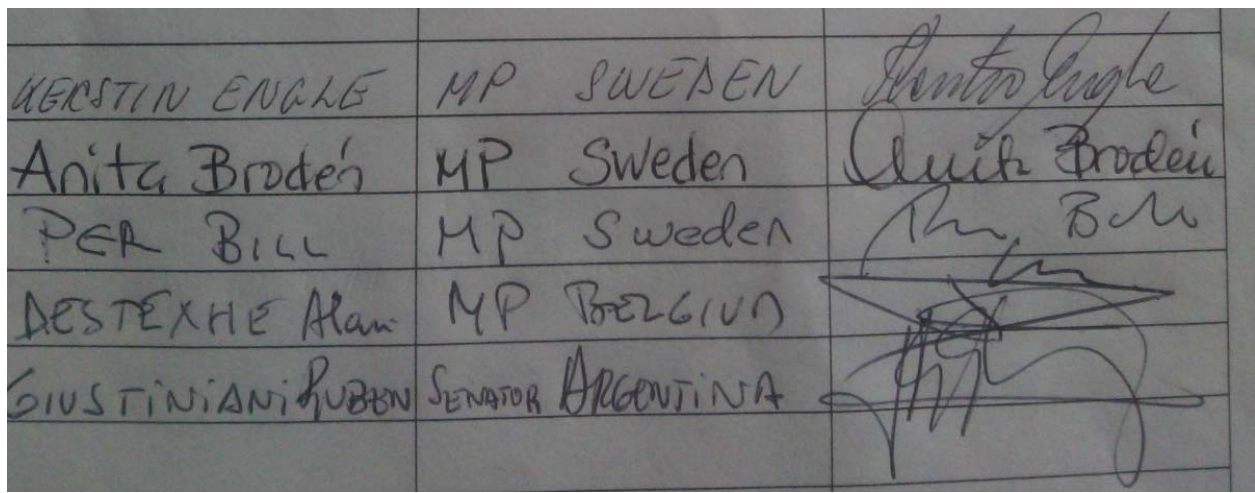 KERSTIN ENGLE MP SWEDEN Kerstin Engle
Anita Brodén MP Sweden Anita Brodén
PER BILL MP Sweden Per Bill
DESTEXHE Alain MP BELGIUM
GIUSTINIANI RUBEN SENATOR ARGENTINA